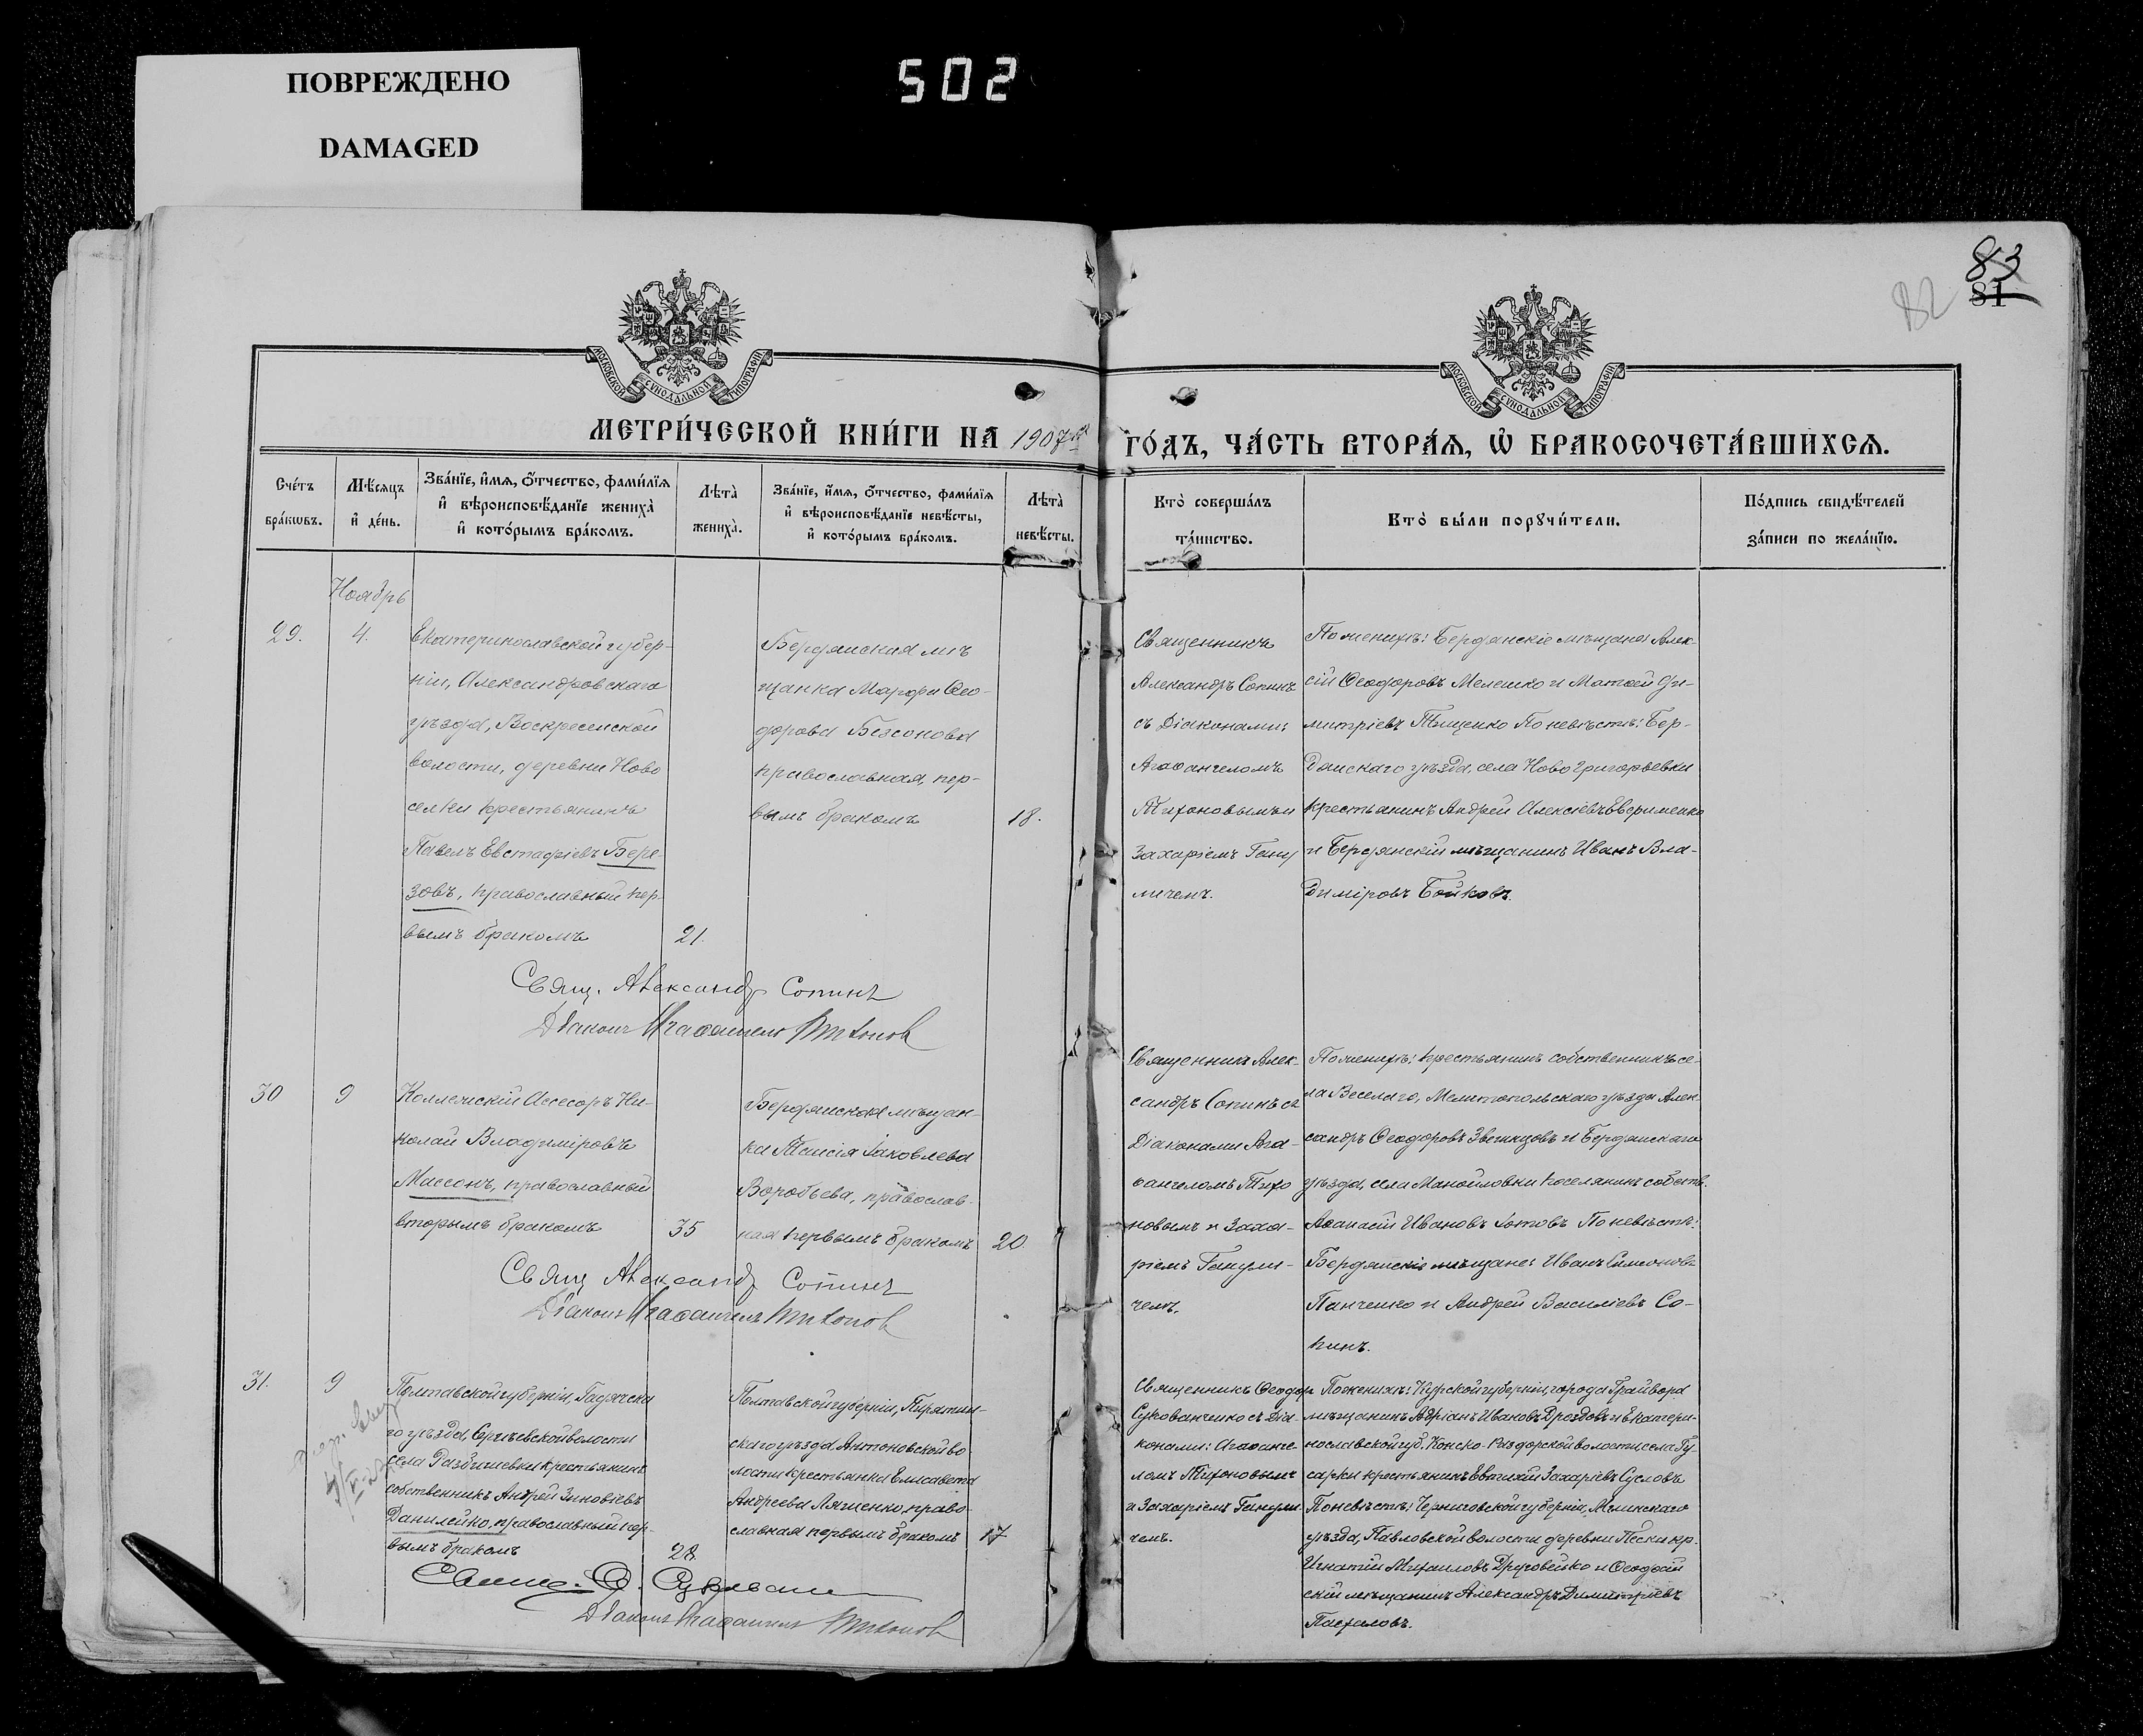 ПОВРЕЖДЕНО
DAMAGED
502
83
81
82
МОСКОВСКОЙ СѴНОДАЛЬНОЙ ТИПОГРАФІИ
МОСКОВСКОЙ СѴНОДАЛЬНОЙ ТИПОГРАФІИ
МЕТРИ́ЧЕСКОЙ КНИ́ГИ НА 1907
ГО́ДЪ, ЧА́СТЬ ВТОРА́Я, Ѡ БРАКОСОЧЕТА́ВШИХСЯ.
Сче́тъ
бра́кѡвъ.
Мѣ́сяцъ
и҆ де́нь.
Зва́нїе, и҆́мя, ѻ҆́тчество, фами́лїя
и҆ вѣроисповѣ́данїе жениха̀
и҆ кото́рымъ бра́комъ.
Лѣта̀
жениха̀.
Зва́нїе, и҆́мя, ѻ҆́тчество, фами́лїя
и҆ вѣроисповѣ́данїе невѣ́сты,
и҆ кото́рымъ бра́комъ.
Лѣта̀
невѣ́сты.
Кто̀ соверша́лъ
та́инство.
Кто̀ бы́ли порꙋчи́тели.
По́дпись свидѣ́телей
за́писи по жела́нїю.
Ноябрь
29.
4.
Екатеринославской губер-
ніи, Александровскаго
уѣзда, Воскресенской
волости, деревни Ново
селки крестьянинъ
Павелъ Евстафіевъ Бере-
зовъ, православный пер-
вымъ бракомъ
21.
Бердянская мѣ
щанка Марфа Ѳео-
дорова Безсонова
православная, пер-
вымъ бракомъ
18.
Священникъ
Александръ Сопинъ
съ Діаконами:
Агаѳангеломъ
Тихоновымъ и
Захаріемъ Гану
личемъ.
По женихѣ: Бердянскіе мѣщане Алек-
сій Ѳеодоровъ Мелешко и Матѳей Ди-
митріевъ Тыщенко По невѣстѣ: Бер-
дянскаго уѣзда, села Ново Григорьевки
крестьянинъ Андрей Алексіевъ Евфименко
и Бердянскій мѣщанинъ Иванъ Вла-
диміровъ Бойковъ.
Свящ. Александр Сопинъ
Діаконъ Агаѳангелъ Тихонов
30
9
Коллежскій Ассесоръ Ни-
колай Владиміровъ
Массонъ, православный
вторымъ бракомъ
35
Бердянская мѣщан-
ка Таисія Іаковлева
Воробьева, православ-
ная первымъ бракомъ
20.
Священникъ Алек-
сандръ Сопинъ съ
Діаконами Ага-
ѳангеломъ Тихо
новымъ и Заха-
ріемъ Ганули-
чемъ.
По женихѣ: крестьянинъ собственникъ се-
ла Веселаго, Мелитопольскаго уѣзда Алек-
сандръ Ѳеодоровъ Звегинцовъ и Бердянскаго
уѣзда, села Манойловки поселянинъ собств.
Аѳанасій Ивановъ Іотовъ По невѣстѣ:
Бердянскіе мѣщане: Иванъ Симеоновъ
Панченко и Андрей Василіевъ Со-
пинъ.
Свящ Александр Сопинъ
Діаконъ Агаѳангелъ Тихонов
31.
9
Полтавской губерніи, Гадячска
го уѣзда, Сергѣевской волости
села Разбишевки крестьянинъ
собственникъ Андрей Зиновіевъ
Данилейко, православный пер-
вымъ бракомъ
28
Полтавской губерніи, Пирятин-
скаго уѣзда Антоновской во
лости крестьянка Елисавета
Андреева Ляшенко, право-
славная первымъ бракомъ
17
Священникъ Ѳеодор
Сукованченко съ Діа-
конами: Агаѳанге-
ломъ Тихоновымъ
и Захаріемъ Ганули-
чемъ.
По женихѣ: Курской губерніи, города Грайвора
мѣщанинъ Адріанъ Ивановъ Дроздовъ и Екатери-
нославской губ. Конско-Раздорской волости села Гу
сарки крестьянинъ Евтихій Захаріевъ Сусловъ
По невѣстѣ: Черниговской губерніи, Мглинскаго
уѣзда, Павловской волости деревни Пески кр.
Игнатій Михаиловъ Дрговейко и Ѳеодосій
скій мѣщанинъ Александръ Димитріевъ
Пахаловъ.
Діаконъ Агаѳангелъ Тихонов